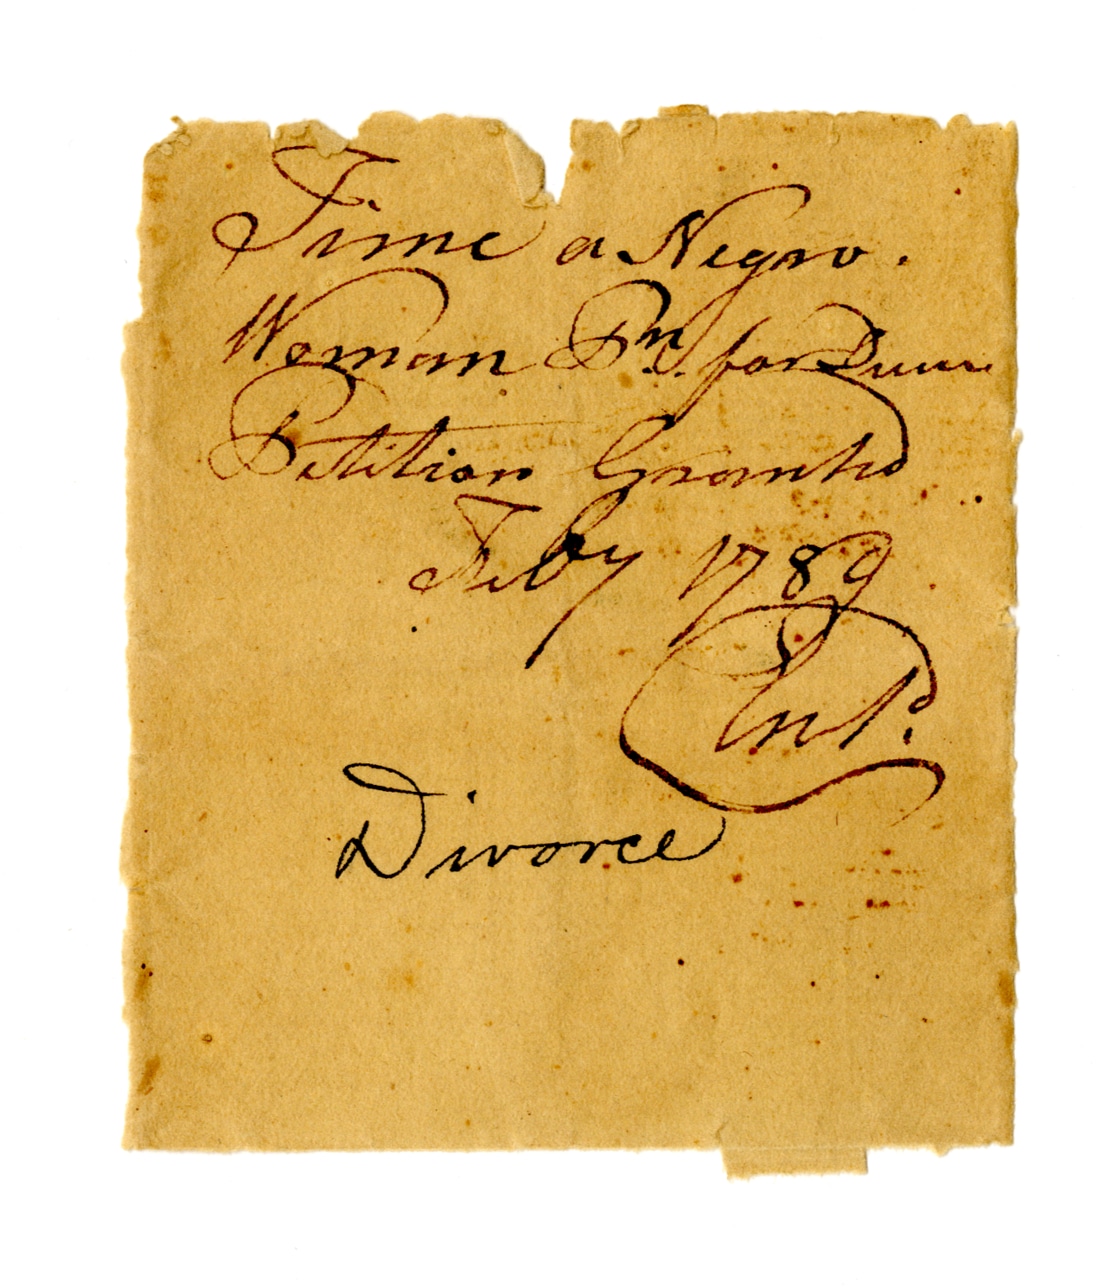 Time a Negro.
Woman Pn. for
Petition Granted
Feby 1789
Ent.
Divorce